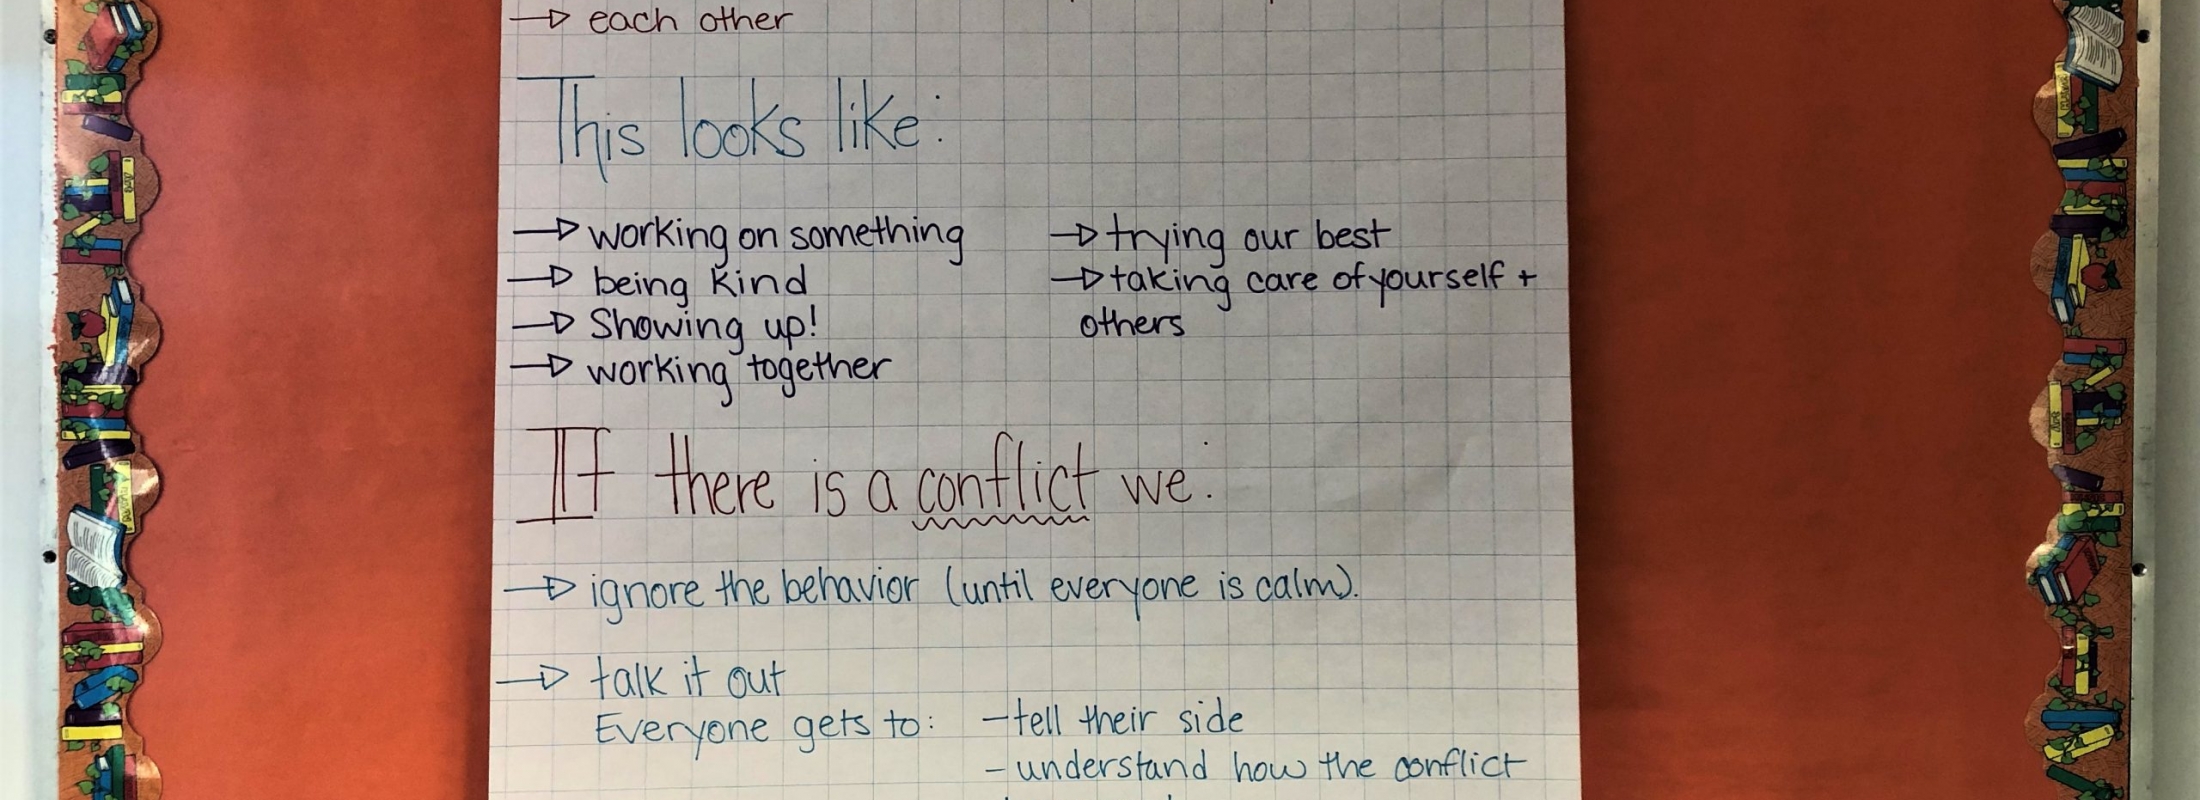 → each other
This looks like:
→ working on something
→ being kind
→ Showing up!
→ working together
→ trying our best
→ taking care of yourself +
others
If there is a conflict we:
→ ignore the behavior (until everyone is calm).
→ talk it out
Everyone gets to: - tell their side
- understand how the conflict